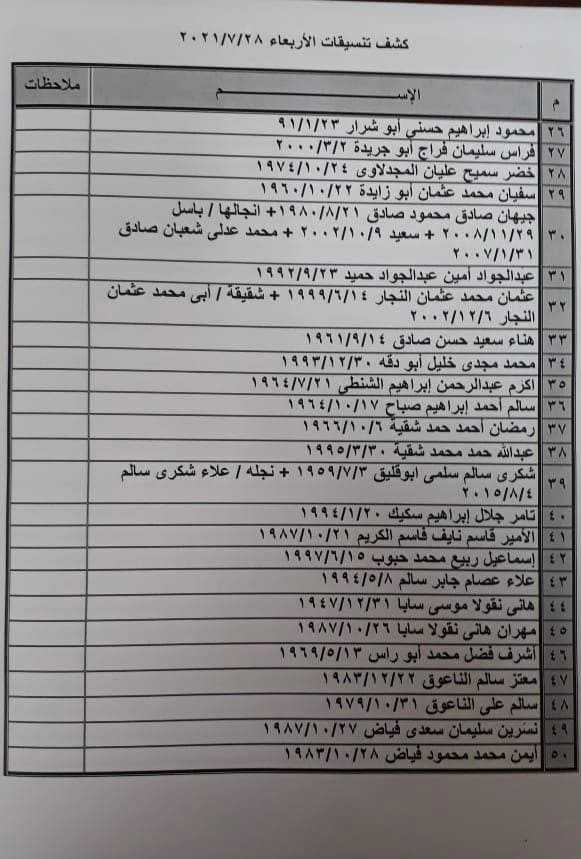 كشف تنسيقات الأربعاء ٢٠٢١/٧/٢٨
م الإســـــــم ملاحظات
٢٦ محمود إبراهيم حسني أبو شرار ٩١/١/٢٣
٢٧ فراس سليمان فراج أبو جريدة ٢٠٠٠/٣/٢
٢٨ خضر سميح عليان المجدلاوى ١٩٧٤/١٠/٢٤
٢٩ سفيان محمد عثمان أبو زايدة ١٩٦٠/١٠/٢٢
٣٠ جيهان صادق محمود صادق ١٩٨٠/٨/٢١+ انجالها / باسل
٢٠٠٨/١١/٢٩ + سعيد ٢٠٠٢/١٠/٩ + محمد عدلى شعبان صادق
٢٠٠٧/١/٣١
٣١ عبدالجواد أمين عبدالجواد حميد ١٩٩٢/٩/٢٣
٣٢ عثمان محمد عثمان النجار ١٩٩٩/٦/١٤ + شقيقة / أبى محمد عثمان
النجار ٢٠٠٢/١٢/٦
٣٣ هناء سعيد حسن صادق ١٩٦١/٩/١٤
٣٤ محمد مجدى خليل أبو دقه ١٩٩٣/١٢/٣٠
٣٥ اكرم عبدالرحمن إبراهيم الشنطى ١٩٦٤/٧/٢١
٣٦ سالم أحمد إبراهيم صباح ١٩٦٤/١٠/١٧
٣٧ رمضان أحمد حمد شقية ١٩٦٦/١٠/٦
٣٨ عبدالله حمد محمد شقية ١٩٩٥/٣/٣٠
٣٩ شكرى سالم سلمى ابوقليق ١٩٥٩/٧/٣ + نجله / علاء شكرى سالم
٢٠١٥/٨/٤
٤٠ تامر جلال إبراهيم سكيك ١٩٩٤/١/٢٠
٤١ الأمير قاسم نايف قاسم الكريم ١٩٨٧/١٠/٢١
٤٢ إسماعيل ربيع محمد حبوب ١٩٩٧/٦/١٥
٤٣ علاء عصام جابر سالم ١٩٩٤/٥/٨
٤٤ هانى نقولا موسى سابا ١٩٤٧/١٢/٣١
٤٥ مهران هانى نقولا سابا ١٩٨٧/١٠/٢٦
٤٦ أشرف فضل محمد أبو راس ١٩٦٩/٥/١٣
٤٧ معتز سالم الناعوق ١٩٨٣/١٢/٢٢
٤٨ سالم على الناعوق ١٩٧٩/١٠/٣١
٤٩ نسرين سليمان سعدى فياض ١٩٨٧/١٠/٢٧
٥٠ أيمن محمد محمود فياض ١٩٨٣/١٠/٢٨